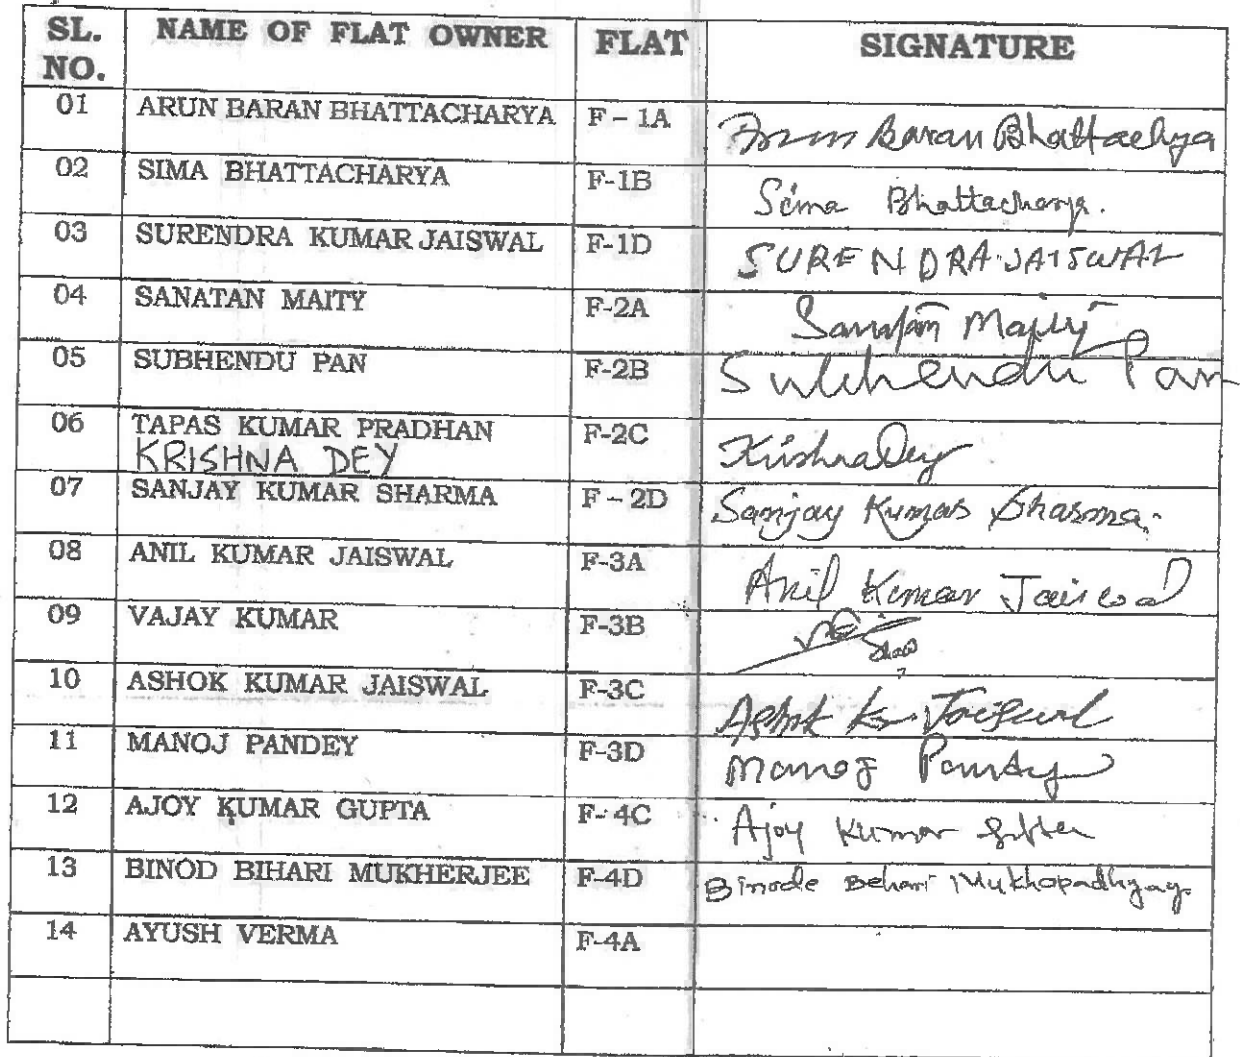 SL. NO. NAME OF FLAT OWNER FLAT SIGNATURE
01 ARUN BARAN BHATTACHARYA F – 1A Arun Baran Bhattachya
02 SIMA BHATTACHARYA F-1B Sima Bhattacharya.
03 SURENDRA KUMAR JAISWAL F-1D SURENDRA JAISWAL
04 SANATAN MAITY F-2A Sanatan
05 SUBHENDU PAN F-2B Subhendu Pan
06 TAPAS KUMAR PRADHAN F-2C Krishna Dey
KRISHNA DEY
07 SANJAY KUMAR SHARMA F – 2D Sanjay Kumar Sharma.
08 ANIL KUMAR JAISWAL F-3A Anil Kumar Jaiswal
09 VAJAY KUMAR F-3B Shaw
10 ASHOK KUMAR JAISWAL F-3C Ashok Kr. Jaiswal
11 MANOJ PANDEY F-3D Manoj Pandey
12 AJOY KUMAR GUPTA F-4C Ajoy Kumar Gupta
13 BINOD BIHARI MUKHERJEE F-4D Binode Behari Mukhopadhyay.
14 AYUSH VERMA F-4A